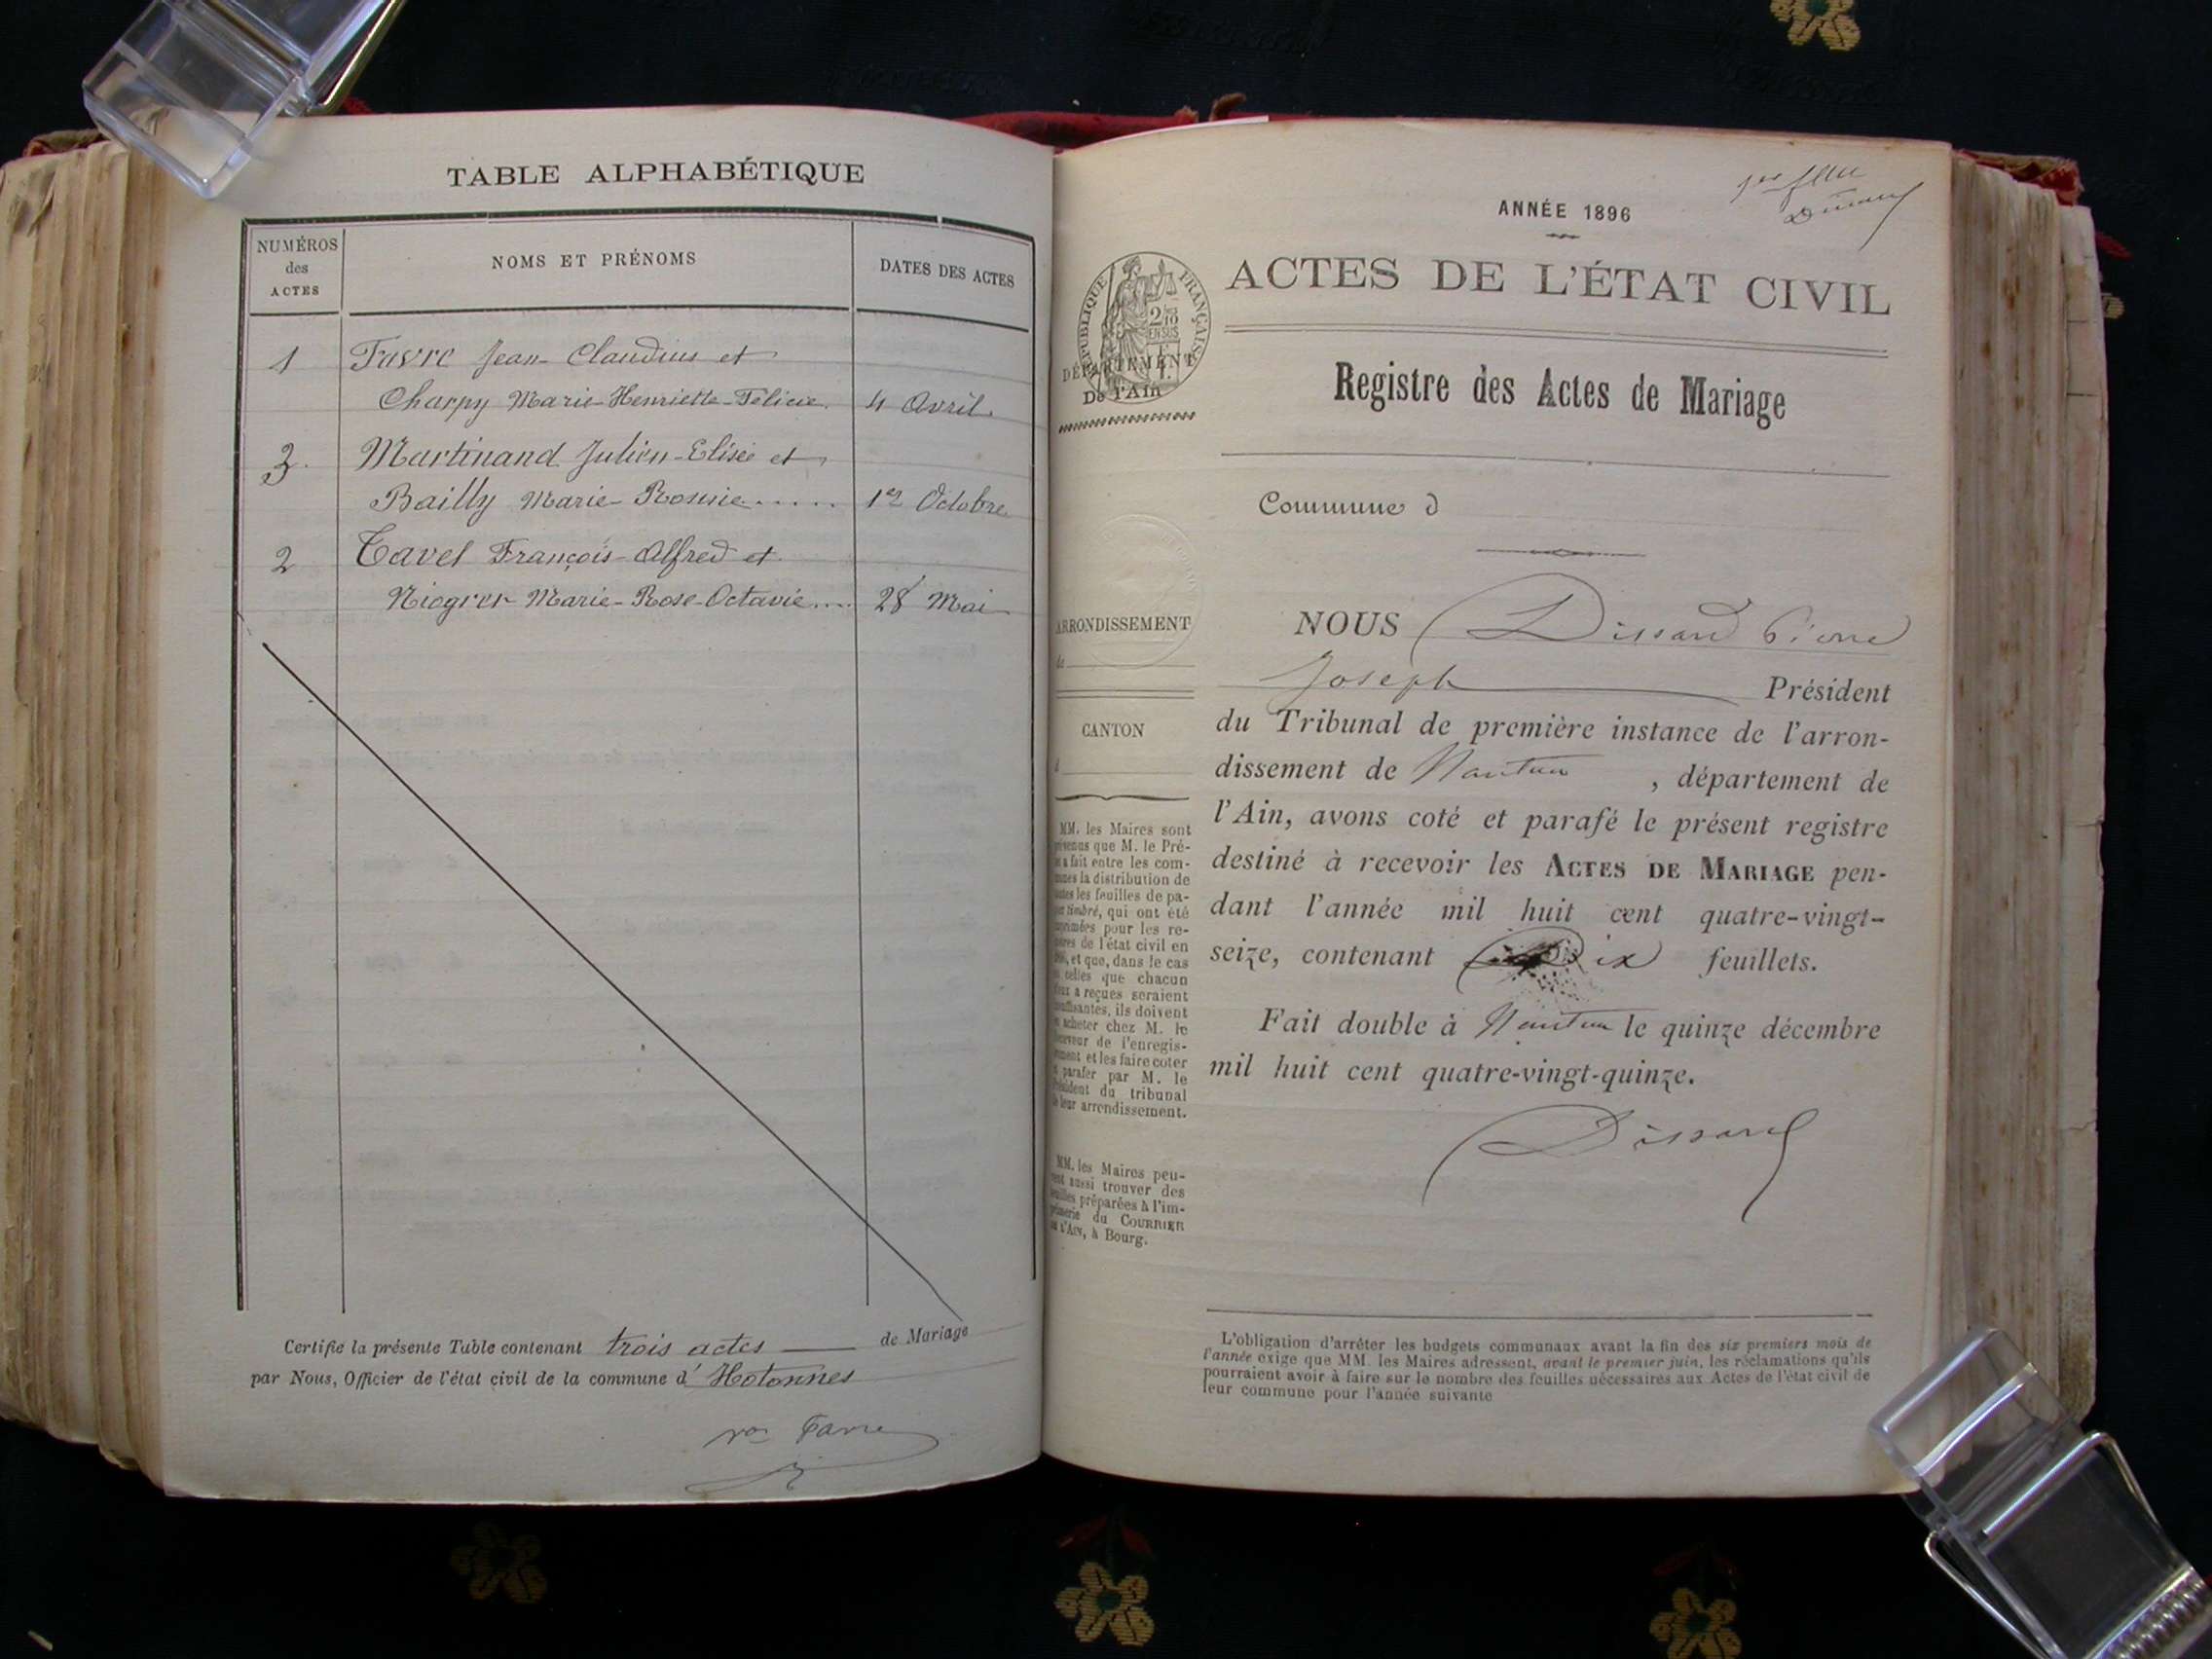 TABLE ALPHABÉTIQUE
NUMÉROS
des
ACTES
NOMS ET PRÉNOMS
DATES DES ACTES
1 Favre Jean-Claudius et
Charpy Marie-Henriette-Félicie. 4 Avril.
3. Martinand Julien-Elisée et
Bailly Marie- ..... 1er Octobre
2 Tavel François-Alfred et
Niogret Marie-Rose-Octavie.... 28 Mai
Certifie la présente Table contenant trois actes de Mariage
par Nous, Officier de l'état civil de la commune d'Hotonnes
Favre
Dissard
ANNÉE 1896
ACTES DE L'ÉTAT CIVIL
RÉPUBLIQUE FRANÇAISE
2/10
EN SUS
DÉPARTEMENT
De l'Ain
Registre des Actes de Mariage
Commune d
ARRONDISSEMENT
de
CANTON
d
NOUS Dissard Pierre
Joseph Président
du Tribunal de première instance de l'arron-
dissement de Nantua, département de
l'Ain, avons coté et parafé le présent registre
destiné à recevoir les ACTES DE MARIAGE pen-
dant l'année mil huit cent quatre-vingt-
seize, contenant Dix feuillets.
Fait double à Nantua le quinze décembre
mil huit cent quatre-vingt-quinze.
Dissard
MM. les Maires sont
que M. le Pré-
a fait entre les com-
la distribution de
les feuilles de pa-
timbré, qui ont été
pour les re-
de l'état civil en
et que, dans le cas
celles que chacun
a reçues seraient
ils doivent
acheter chez M. le
de l'enregis-
et les faire coter
parafer par M. le
du tribunal
leur arrondissement.
MM. les Maires peu-
aussi trouver des
préparées à l'im-
du COURRIER
L'AIN, à Bourg.
L'obligation d'arrêter les budgets communaux avant la fin des six premiers mois de
l'année exige que MM. les Maires adressent, avant le premier juin, les réclamations qu'ils
pourraient avoir à faire sur le nombre des feuilles nécessaires aux Actes de l'état civil de
leur commune pour l'année suivante